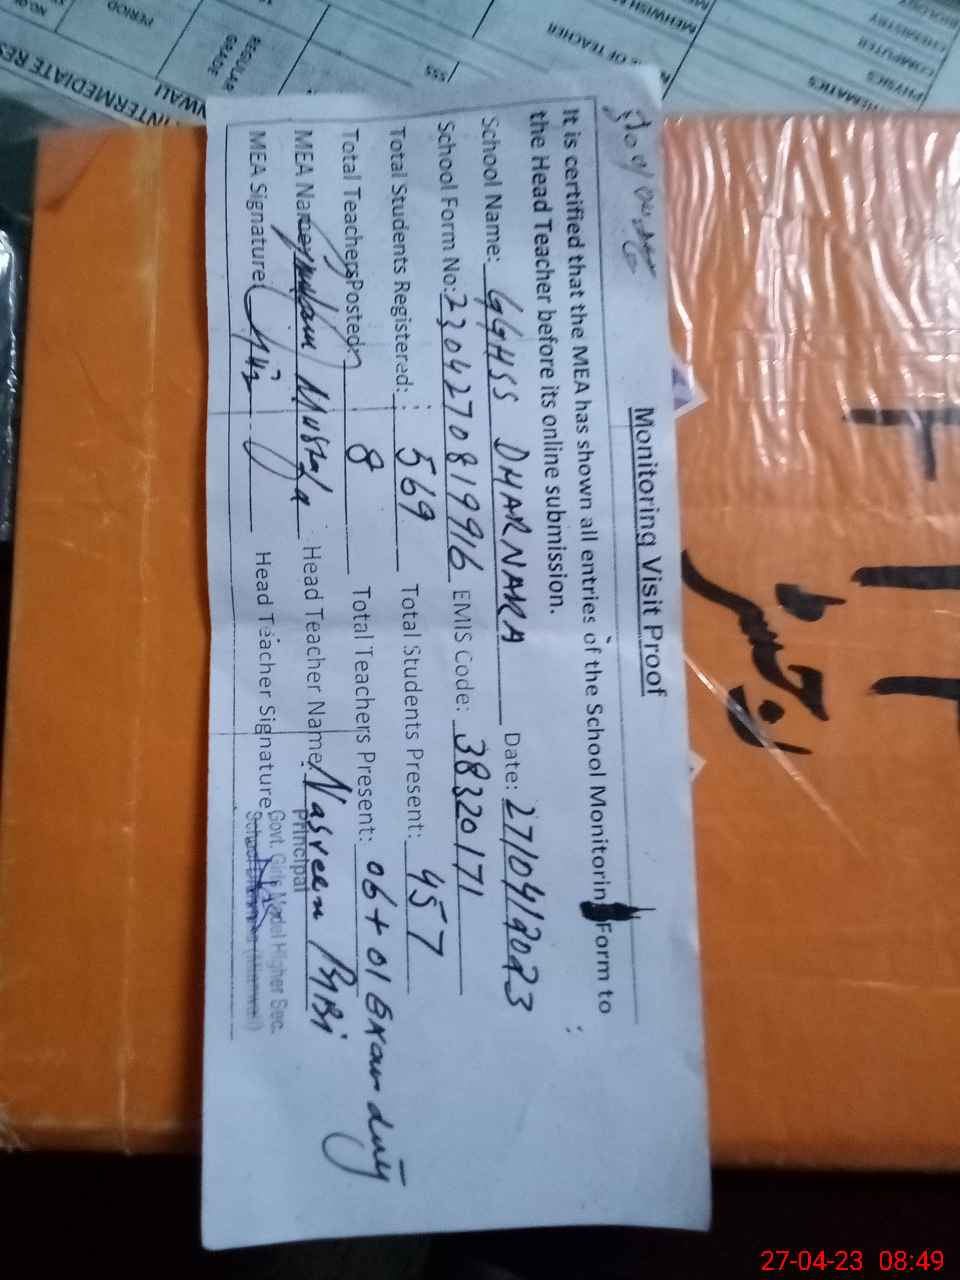 Monitoring Visit Proof
It is certified that the MEA has shown all entries of the School Monitoring Form to
the Head Teacher before its online submission.
School Name: GGHSS DHARNAKA Date: 27/04/2023
School Form No: 230427081996 EMIS Code: 38320171
Total Students Registered: 569 Total Students Present: 457
Total Teachers Posted: 8 Total Teachers Present: 06+01 Exam duty
MEA Name: Mustafa Head Teacher Name: Nasreen BiBi
MEA Signature Head Teacher Signature
Principal
Govt. Girls Model Higher Sec.
School
INTERMEDIATE RES
PERIOD
REGULAR
GRADE
OF TEACHER
MEHWISH
CHEMISTRY
COMPUTER
PHYSICS
27-04-23 08:49